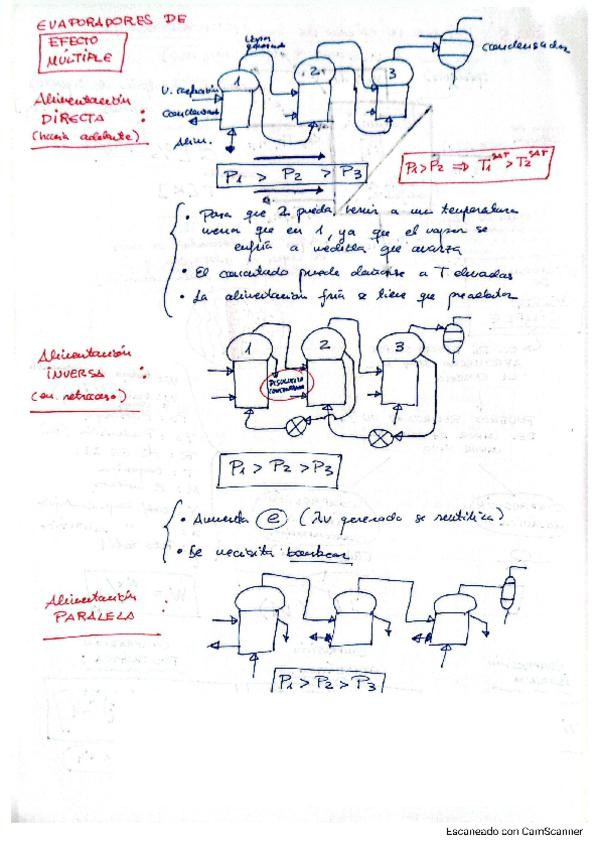 EVAPORADORES DE
EFECTO
MÚLTIPLE
Alimentación
DIRECTA :
(hacia adelante)
Vapor
generado
1
2
3
condensador
V. calefacción
Condensado
Alim.
P1 > P2 > P3
P1 > P2 ⇒ T1^SAT > T2^SAT
• Para que 2 pueda hervir a una temperatura
menor que en 1, ya que el vapor se
enfría a medida que avanza
• El concentrado puede dañarse a T elevadas
• La alimentación fría se tiene que precalentar
Alimentación
INVERSA :
(en retroceso)
1
2
3
DISOLUCIÓN
CONCENTRADA
P1 > P2 > P3
• Aumenta e (λv generado se reutiliza)
• Se necesita bombear
Alimentación :
PARALELA
P1 > P2 > P3
Escaneado con CamScanner